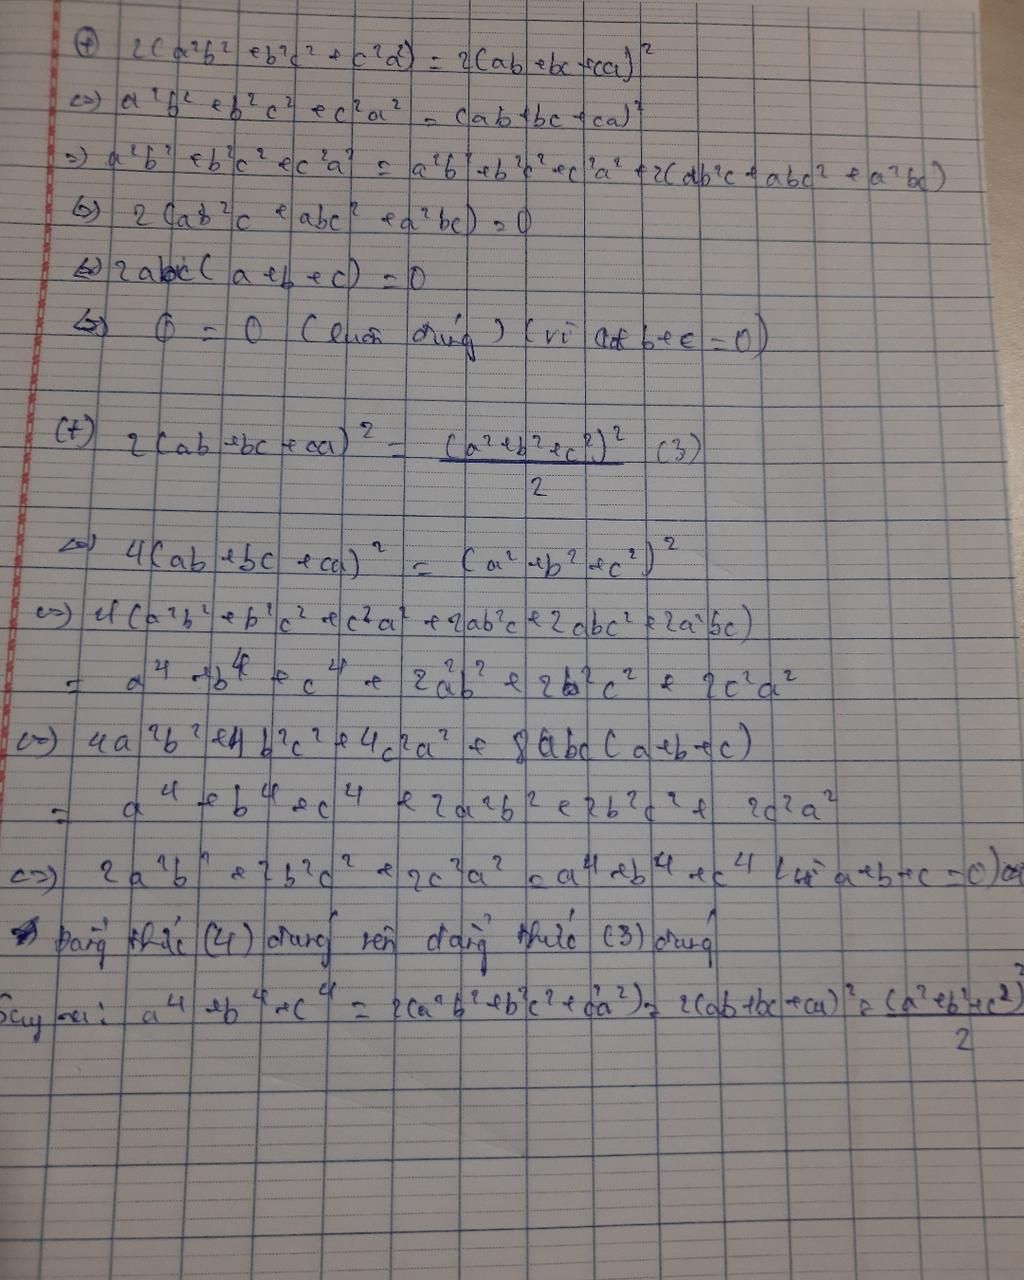 (+) 2(a²b² + b²c² + c²a²) = 2(ab + bc + ca)²
<=> a²b² + b²c² + c²a² = (ab + bc + ca)²
=> a²b² + b²c² + c²a² = a²b² + b²c² + c²a² + 2(ab²c + abc² + a²bc)
<=> 2(ab²c + abc² + a²bc) = 0
<=> 2abc(a + b + c) = 0
<=> 0 = 0 (luôn đúng) (vì a + b + c = 0)
(+) 2(ab + bc + ca)² = (a² + b² + c²)² / 2 (3)
<=> 4(ab + bc + ca)² = (a² + b² + c²)²
<=> 4(a²b² + b²c² + c²a² + 2ab²c + 2abc² + 2a²bc)
= a⁴ + b⁴ + c⁴ + 2a²b² + 2b²c² + 2c²a²
<=> 4a²b² + 4b²c² + 4c²a² + 8abc(a + b + c)
= a⁴ + b⁴ + c⁴ + 2a²b² + 2b²c² + 2c²a²
<=> 2a²b² + 2b²c² + 2c²a² = a⁴ + b⁴ + c⁴ (vì a + b + c = 0)
Đẳng thức (4) đúng nên đẳng thức (3) đúng
Suy ra: a⁴ + b⁴ + c⁴ = 2(a²b² + b²c² + c²a²) = 2(ab + bc + ca)² = (a² + b² + c²)² / 2